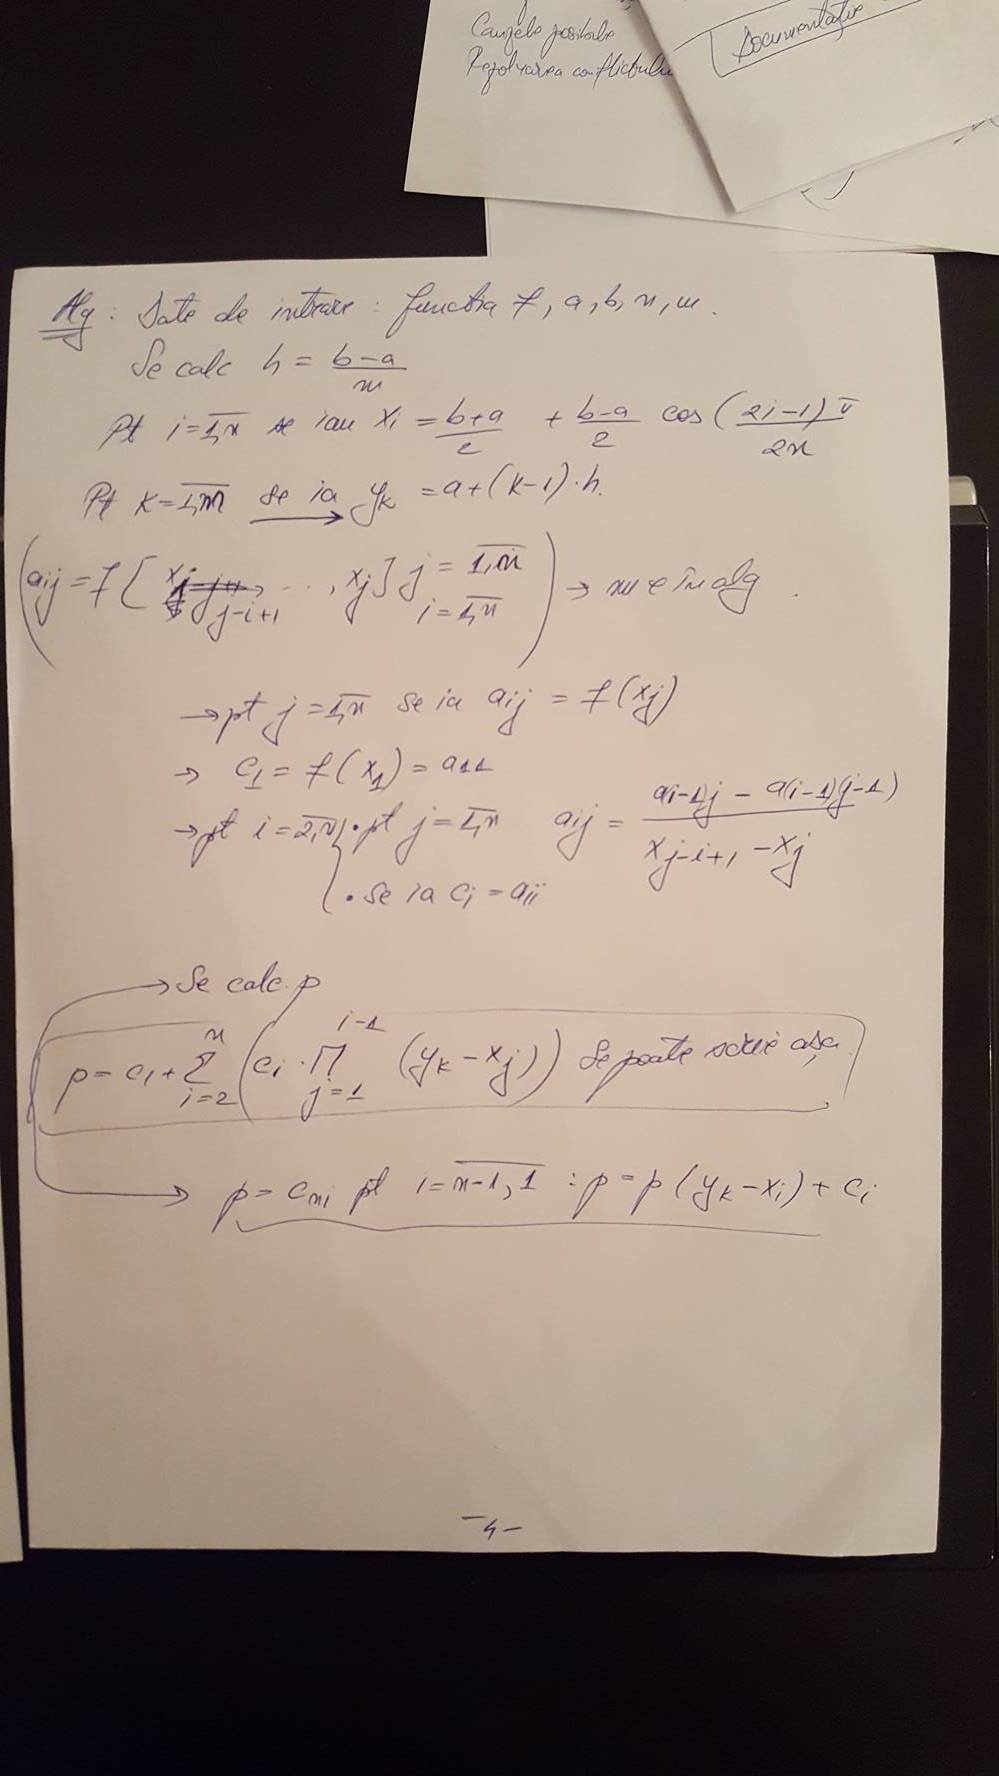 Cauzele posibile
Rezolvarea conflictului
Documentație
Alg : Date de intrare : funcția f, a, b, n, m.
Se calc h = (b-a)/m
Pt i=1,n se iau xi = (b+a)/2 + (b-a)/2 cos((2i-1)π/2n)
Pt k=1,m se ia yk = a+(k-1)·h.
(aij = f[xj-i+1, ..., xj] j = 1,n i = 1,n) → nu e în alg.
→ pt j = 1,n se ia aij = f(xj)
→ c1 = f(x1) = a11
→ pt i = 2,n • pt j = 1,n aij = (a(i-1)j - a(i-1)(j-1))/(xj-i+1 - xj)
• se ia ci = aii
→ Se calc. p
p = c1 + Σ i=2 n (ci · Π j=1 i-1 (yk - xj)) Se poate scrie așa
→ p = cn; pt i = n-1,1 : p = p(yk - xi) + ci
-4-